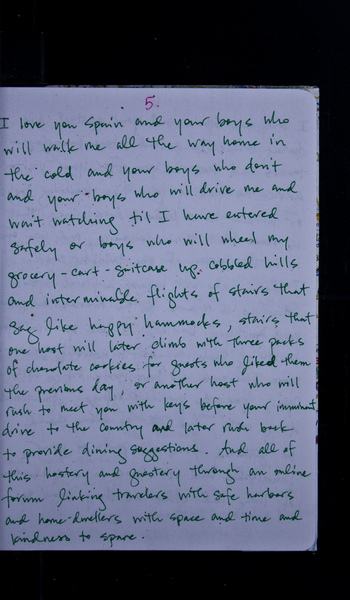 5.
I love you Spain and your boys who
will walk me all the way home in
the cold and your boys who don't
and your boys who will drive me and
wait watching 'til I have entered
safely or boys who will wheel my
grocery-cart-suitcase up cobbled hills
and interminable flights of stairs that
sag like happy hammocks, stairs that
one host will later climb with three packs
of chocolate cookies for guests who liked them
the previous day, or another host who will
rush to meet you with keys before your imminent
drive to the country and later rush back
to provide dining suggestions. And all of
this hostery and guestery through an online
forum linking travelers with safe harbors
and home-dwellers with space and time and
kindness to spare.